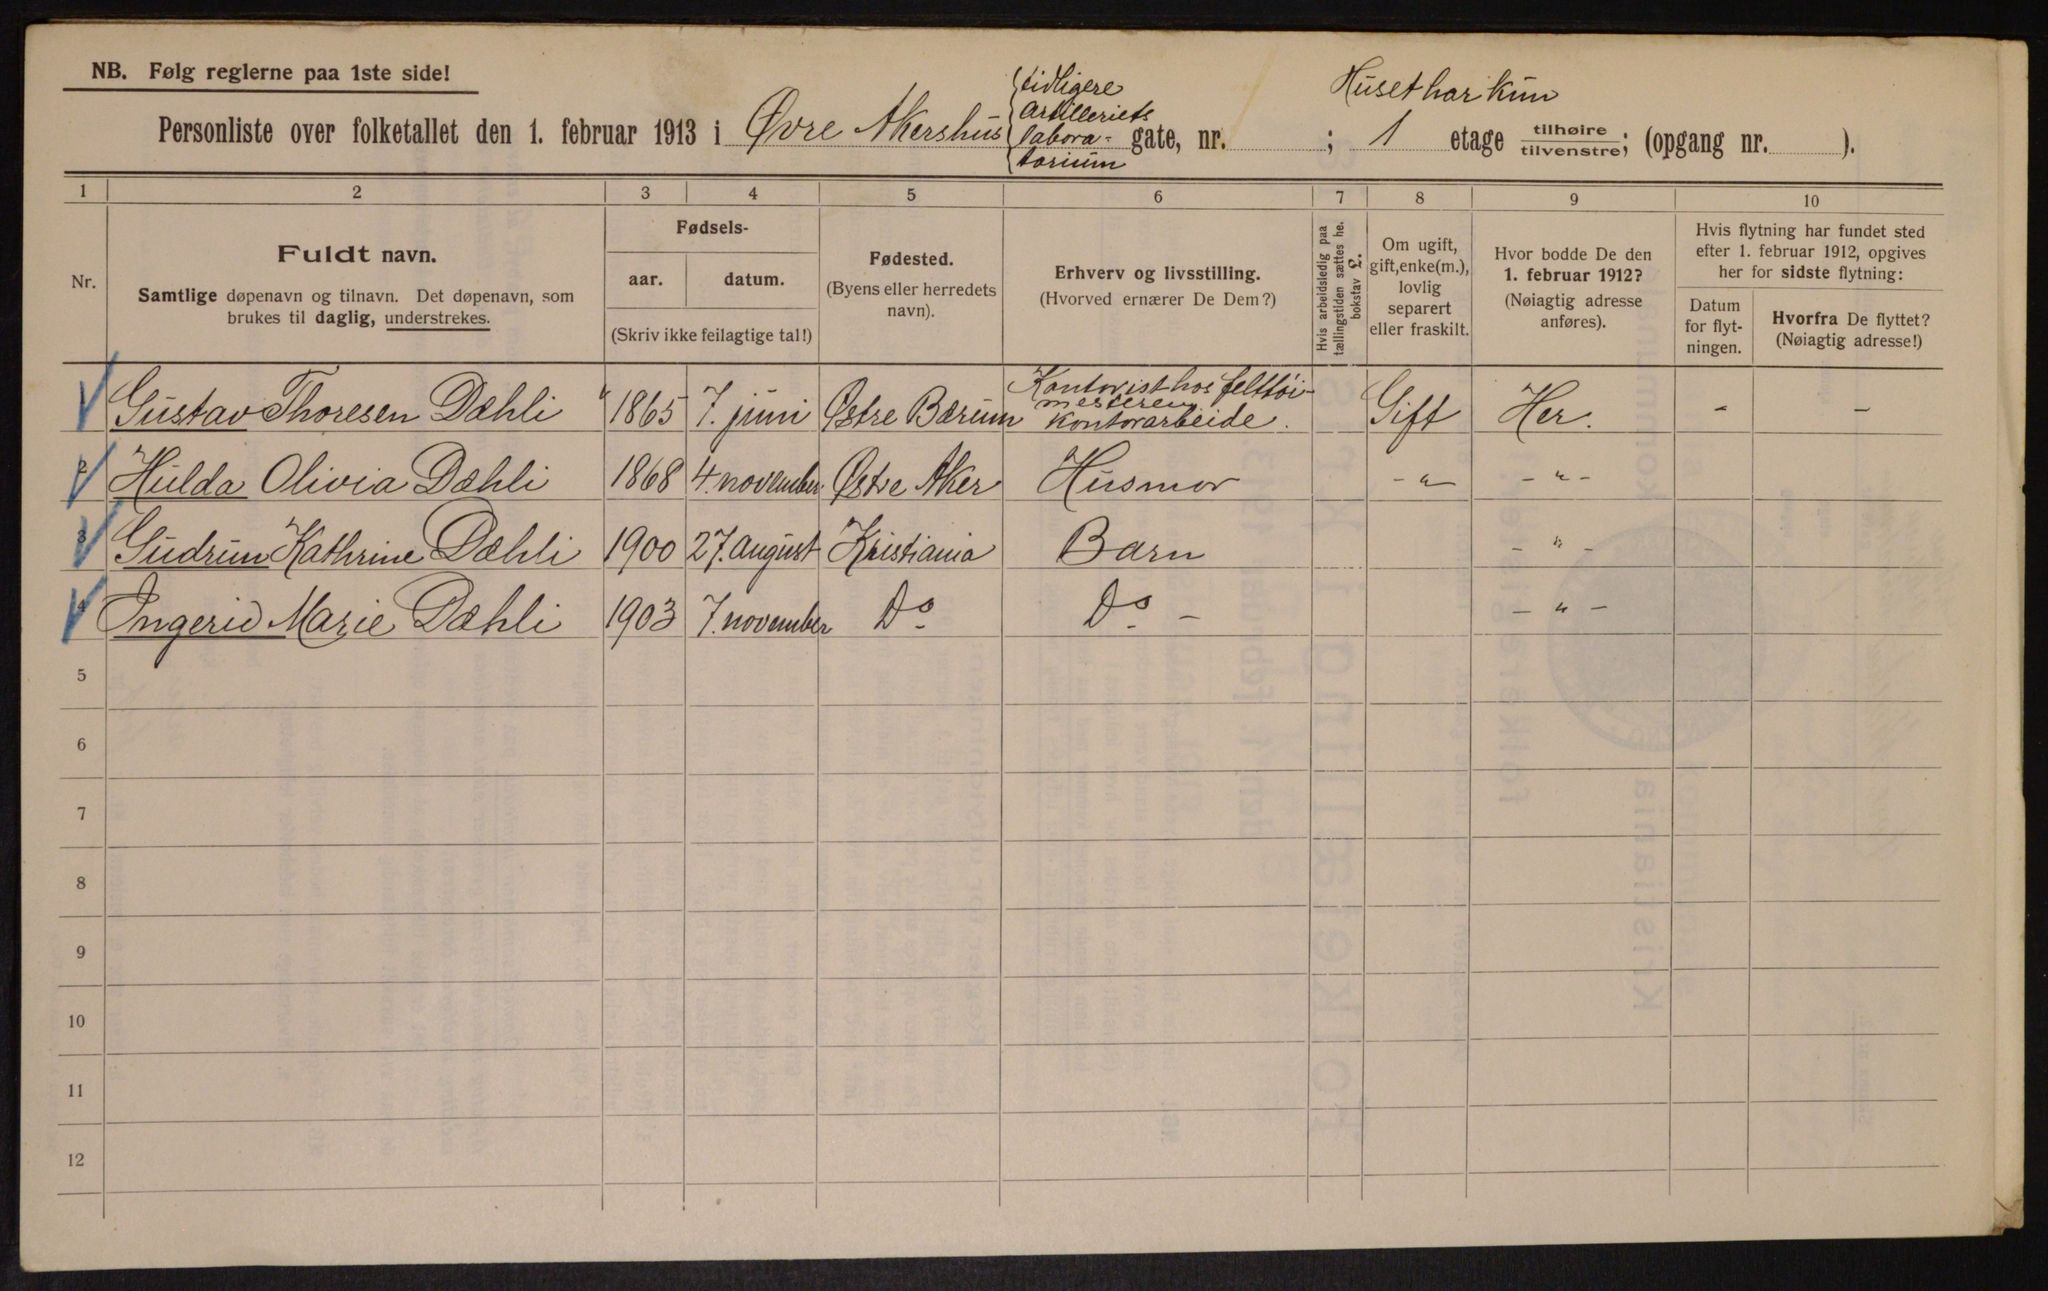 NB. Følg reglerne paa 1ste side!
Personliste over folketallet den 1. februar 1913 i Øvre Akershus tidligere Artilleriets labora-torium gate, nr. ; Huset har kun 1 etage tilhøire tilvenstre; (opgang nr. ).
1 2 3 4 5 6 7 8 9 10
Nr.
Fuldt navn.
Samtlige døpenavn og tilnavn. Det døpenavn, som
brukes til daglig, understrekes.
Fødsels-
aar. datum.
(Skriv ikke feilagtige tal!)
Fødested.
(Byens eller herredets
navn).
Erhverv og livsstilling.
(Hvorved ernærer De Dem?)
Hvis arbeidsledig paa
tællingstiden sættes he.
bokstav L.
Om ugift,
gift, enke(m.),
lovlig
separert
eller fraskilt.
Hvor bodde De den
1. februar 1912?
(Nøiagtig adresse
anføres).
Hvis flytning har fundet sted
efter 1. februar 1912, opgives
her for sidste flytning:
Datum
for flyt-
ningen.
Hvorfra De flyttet?
(Nøiagtig adresse!)
Gustav Thoresen Dæhli 1865 7. juni Østre Bærum Kontorist hos felttøi-mesteren kontorarbeide. Gift Her. - -
2 Hulda Olivia Dæhli 1868 4. november Østre Aker Husmor -"- -"-
3 Gudrun Kathrine Dæhli 1900 27. august Kristiania Barn -"-
4 Ingerid Marie Dæhli 1903 7. november Do Do - -"-
5
6
7
8
9
10
11
12